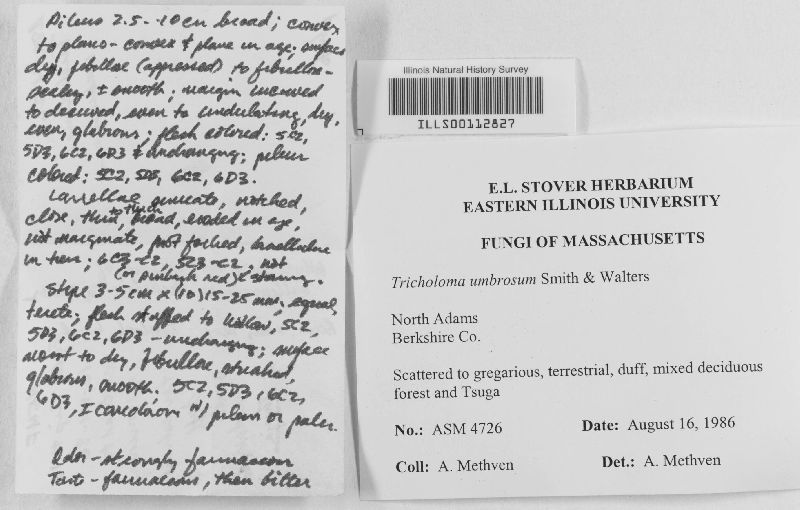 Pileus 2.5-10cm broad; convex
to plano-convex & plane in age; surface
dry, fibrillose (appressed) to fibrillose-
scaley, ± smooth; margin incurved
to decurved, even to undulating, dry,
even, glabrous; flesh colored: 5C2,
5D3, 6C2, 6D3 & unchanging; pileus
colored: 5C2, 5D3, 6C2, 6D3.
Lamellae sinuate, notched,
close, thin to thick, broad, eroded in age,
not marginate, not forked, lamellulae
in tiers; 6C3-C2, 5C3-C2, not
(or pinkish red) staining.
Stipe 3-5cm x (10)15-25 mm, equal,
terete; flesh stuffed to hollow, 5C2,
5D3, 6C2, 6D3 - unchanging; surface
moist to dry, fibrillose, striated,
glabrous, smooth; 5C2, 5D3, 6C2,
6D3, concolorous w/ pileus or paler.
Odor - strongly farinaceous
Taste - farinaceous, then bitter
Illinois Natural History Survey
ILLS00112827
E.L. STOVER HERBARIUM
EASTERN ILLINOIS UNIVERSITY
FUNGI OF MASSACHUSETTS
Tricholoma umbrosum Smith & Walters
North Adams
Berkshire Co.
Scattered to gregarious, terrestrial, duff, mixed deciduous
forest and Tsuga
No.: ASM 4726 Date: August 16, 1986
Coll: A. Methven Det.: A. Methven